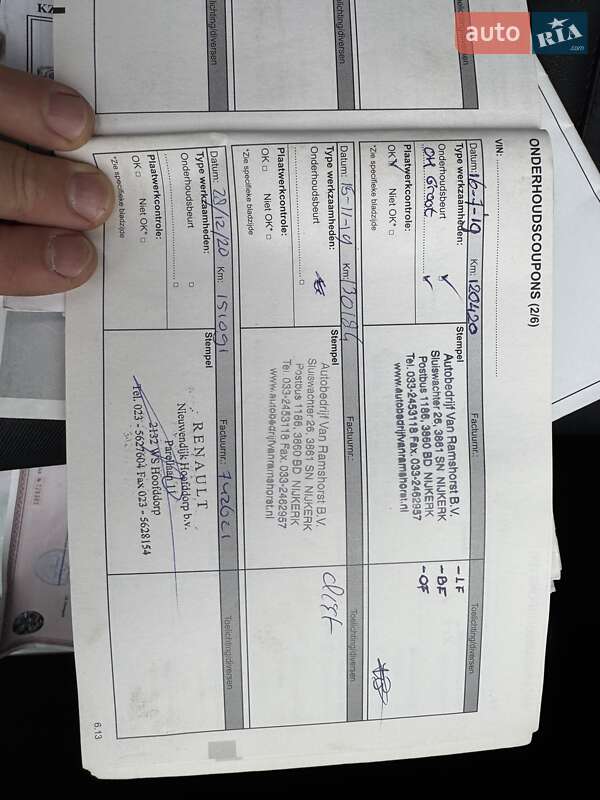 auto RIA .com
KZ
Toelichting/diversen
Toelichting/diversen
Toelichting/diversen
ONDERHOUDSCOUPONS (2/6)
VIN:
Datum: 16-7-'19 Km: 120420
Type werkzaamheden:
Onderhoudsbeurt
OH Groot
Plaatwerkcontrole:
OK Niet OK*
*Zie specifieke bladzijde
Stempel Factuurnr.:
Autobedrijf Van Ramshorst B.V.
Sluiswachter 26, 3861 SN NIJKERK
Postbus 1186, 3860 BD NIJKERK
Tel. 033-2453118 Fax. 033-2462957
www.autobedrijfvanramshorst.nl
Toelichting/diversen
- LF
- BF
- OF
Datum: 15-11-19 Km: 130184
Type werkzaamheden:
Onderhoudsbeurt
Plaatwerkcontrole:
OK Niet OK*
*Zie specifieke bladzijde
Stempel Factuurnr.:
Autobedrijf Van Ramshorst B.V.
Sluiswachter 26, 3861 SN NIJKERK
Postbus 1186, 3860 BD NIJKERK
Tel. 033-2453118 Fax. 033-2462957
www.autobedrijfvanramshorst.nl
Toelichting/diversen
Datum: 28/12/20 Km: 151091
Type werkzaamheden:
Onderhoudsbeurt
Plaatwerkcontrole:
OK Niet OK*
*Zie specifieke bladzijde
Stempel Factuurnr.:
RENAULT
Nieuwendijk Hoofddorp b.v.
Parellaan 17
2132 WS Hoofddorp
Tel. 023 - 5627604 Fax 023 - 5628154
Toelichting/diversen
6.13